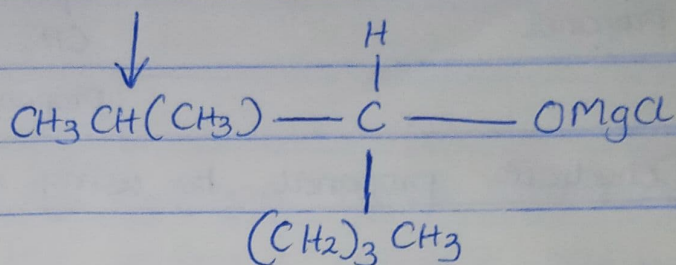 H
CH3CH(CH3) — C — OMgCl
(CH2)3 CH3